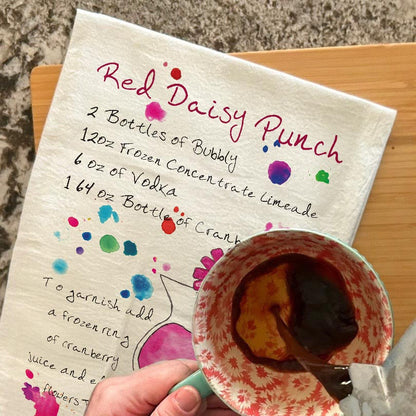 Red Daisy Punch
2 Bottles of Bubbly
12oz Frozen Concentrate Limeade
6 oz of Vodka
1 64 oz Bottle of Cranb
To garnish add
a frozen ring
of cranberry
juice and e
flowers T